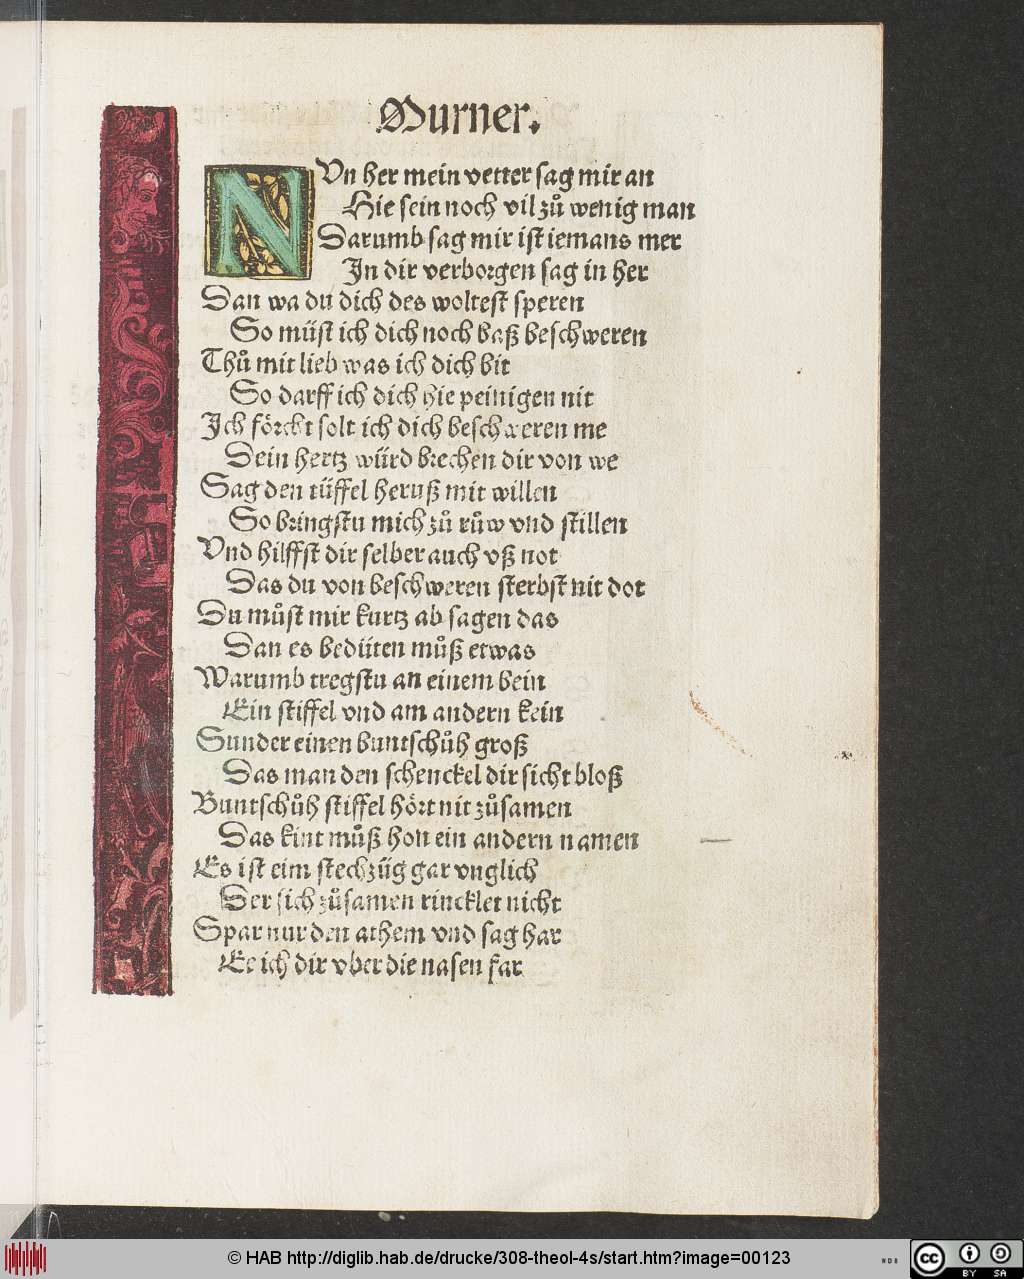 Murner.
NVn her mein vetter sag mir an
Hie sein noch vil zů wenig man
Darumb sag mir ist iemans mer
In dir verborgen sag in her
Dan wa du dich des woltest speren
So müst ich dich noch baß beschweren
Thů mit lieb was ich dich bit
So darff ich dich hie peinigen nit
Ich förcht solt ich dich beschweren me
Dein hertz würd brechen dir von we
Sag den tüffel heruß mit willen
So bringstu mich zů růw vnd stillen
Vnd hilffst dir selber auch vß not
Das du von beschweren sterbst nit dot
Du můst mir kurtz ab sagen das
Dan es bedüten můß etwas
Warumb tregstu an einem bein
Ein stiffel vnd am andern kein
Sunder einen buntschůh groß
Das man den schenckel dir sicht bloß
Buntschůh stiffel hört nit zůsamen
Das kint můß hon ein andern namen
Es ist eim stechzüg gar vnglich
Der sich zůsamen rincklet nicht
Spar nur den athem vnd sag har
Ee ich dir vber die nasen far
© HAB http://diglib.hab.de/drucke/308-theol-4s/start.htm?image=00123
WDB
cc BY SA